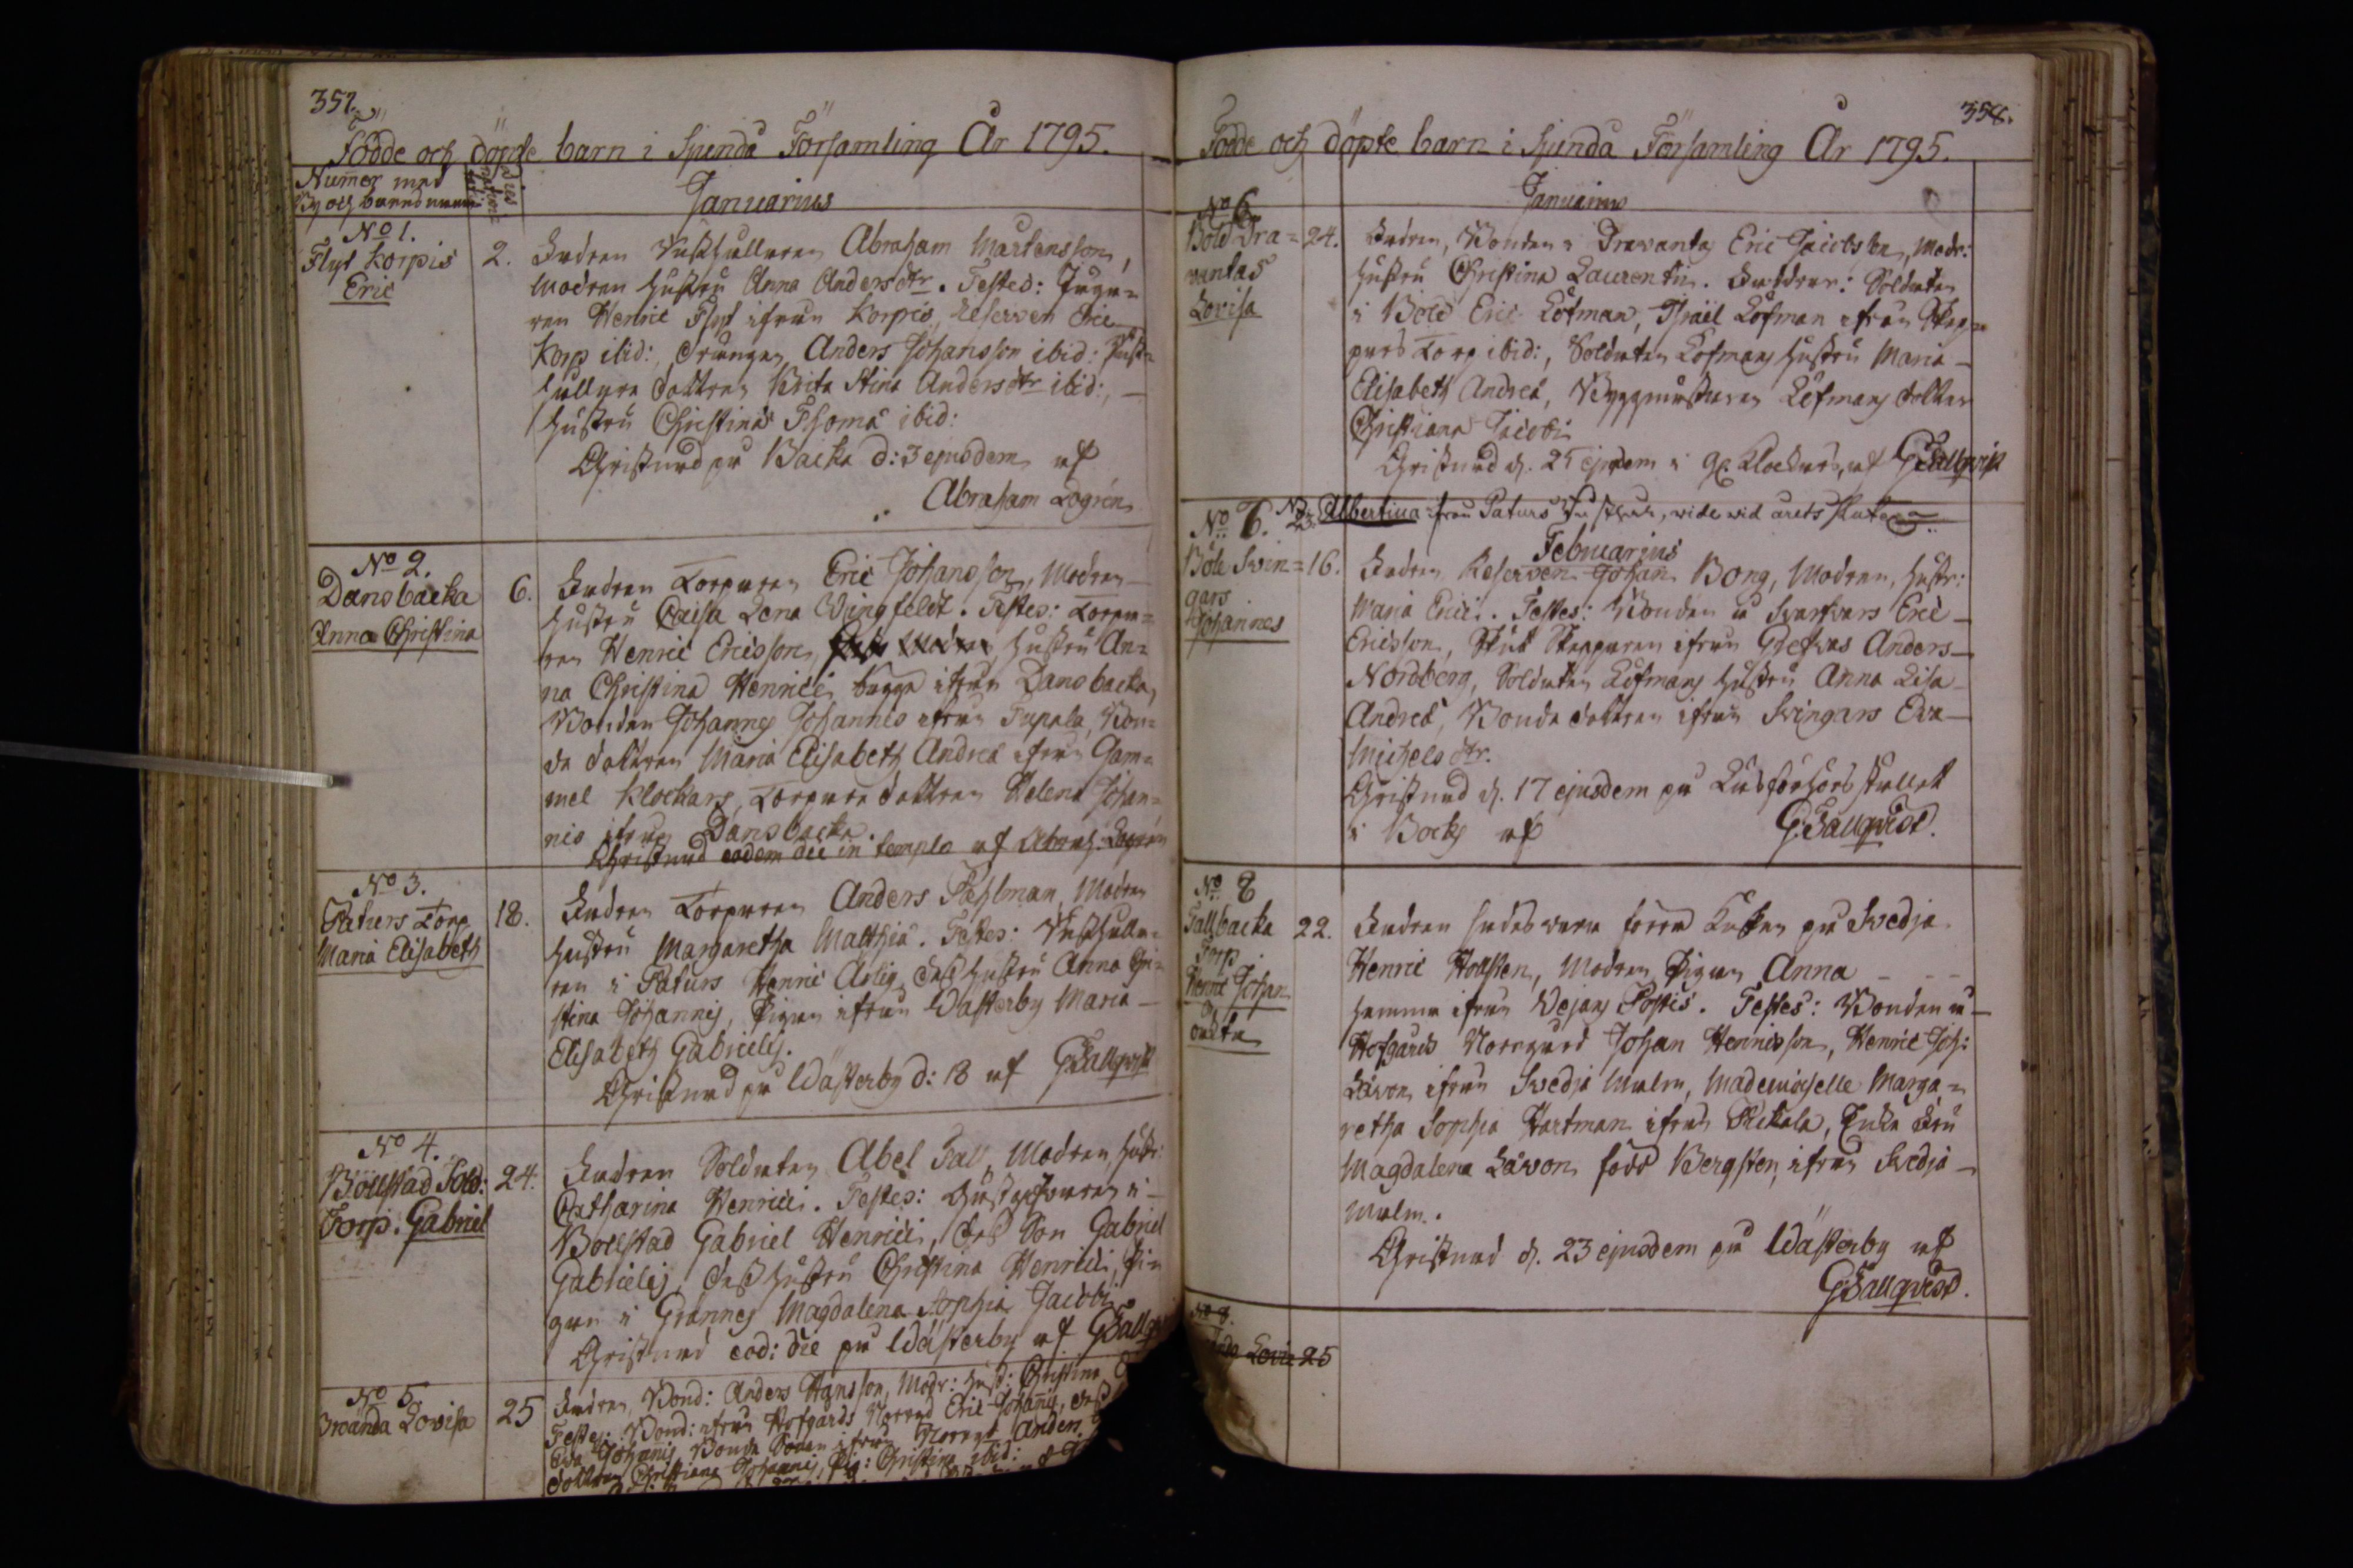 357.
Födde och döpte barn i Sjundå Församling År 1795.
Numer med
By och barnd namn
dies
natan=
Januarius
No 1.
Flyt Korpis
Eric
2.
Fadren Inhysullaren Abraham Martensson,
Modren hustru Anna Andersdtr. Testes:
ren Henric Flyt ifrån Korpis, Reserven Eric
Korp ibid: drängen Anders Johansson ibid:
dottren Brita Stina Andersdtr ibid: —
hustru Christina Thomæ ibid:
Christnad på Backa d: 3 ejusdem af
Abraham Logrén
No 2.
Dansbacka
Anna Christina
6.
Fadren Torparen Eric Johansson, Modren —
hustru Caisa Lena Wingfeldt. Testes: Torpa=
ren Henric Ericsson, hustru An=
na Christina Henrici, bägge ifrån Dansbacka,
Bonden Johannes Johannis ifrån Tupala, Bon=
de dottren Maria Elisabeth Andreæ ifrån Gam=
mel Klockars, Torpare dottren Helena Johan=
nis ifrån Dansbacka.
Christnad eodem die in templo af Abrah: Logrén
No 3.
Paturs Torp
Maria Elisabeth
18.
Fadren Torparen Anders Pahlman, Modren
hustru Margaretha Matthiæ. Testes:
ren i Paturs Henric Arlig, dess hustru Anna Chri=
stina Johannis, Pigan ifrån Wästerby Maria —
Elisabeth Gabrielis.
Christnad på Wästerby d: 18 af G Tallqvist
No 4.
Böllstad Sold:
Torp. Gabriel
24.
Fadren Soldaten Abel Fall, Modren hustr:
Catharina Henrici. Testes: Gästgifvaren i —
Böllstad Gabriel Henrici, dess Son Gabriel
Gabrielis, dess hustru Christina Henrici, Pi=
gan i Grännes Magdalena Sophia Jacobi
Christnad eod: die på Wästerby af G Tallqv
No 5.
Lovisa
25
Fadren, Bond: Anders Hansson, Modr: hust: Christina
Testes: Bond: ifrån Hofgårds Norrgd Eric Johannis, dess
Eva Johannis, Bonde Sonen ifrån Norrgd Anders
dottren Christiana Johannis, Pig: Christina ibid:
358.
Födde och döpte barn i Sjundå Församling År 1795.
Januarius
No 6
Böle Dra=
vantas
Lovisa
24.
Fadren, Bonden i Dravantas Eric Jacobsson, Modr:
hustru Christina Laurentii. Faddrar: Soldaten
i Böle Eric Löfman, Israël Löfman ifrån Skep=
pars Torp ibid:, Soldaten Löfmans hustru Maria —
Elisabeth Andreæ, Byggmästaren Löfmans dotter
Christiana Jacobi
Christnad d. 25 ejusdem i Gl Klockars, af G Tallqvist
NB. Albertina ifrån Paturs, vide vid årets slut
No 7.
Böle Svin=
gars
Johannes
Februarius
16.
Fadren Reserven Johan Bong, Modren, hustr:
Maria Erici. Testes: Bonden i Svartvars Eric —
Ericsson, Skepparen ifrån Grefvas Anders —
Nordberg, Soldaten Löfmans hustru Anna Lisa
Andreæ, Bonde dottren ifrån Svingars Eva —
Michelsdtr.
Christnad d. 17 ejusdem på Läsförhörs stället
i Bocks af
G Tallqvist.
No 8
Tallbacka
Torp
Henric Johan
oäkta
22.
Fadren sädes vara förra på Svedja
Henric Hollsten, Modren Pigan Anna - - -
hemma ifrån Vejans Postis. Testes: Bonden i —
Hofgårds Norrgård Johan Henricsson, Henric Joh:
Låwon ifrån Svedja Malm, Mademoiselle Marga=
retha Sophia Hartman ifrån Pickala, Enke Fru
Magdalena Låwon född Bergsten ifrån Svedja —
Malm.
Christnad d. 23 ejusdem på Wästerby af
G Tallqvist.
No 8.
Lovis 25